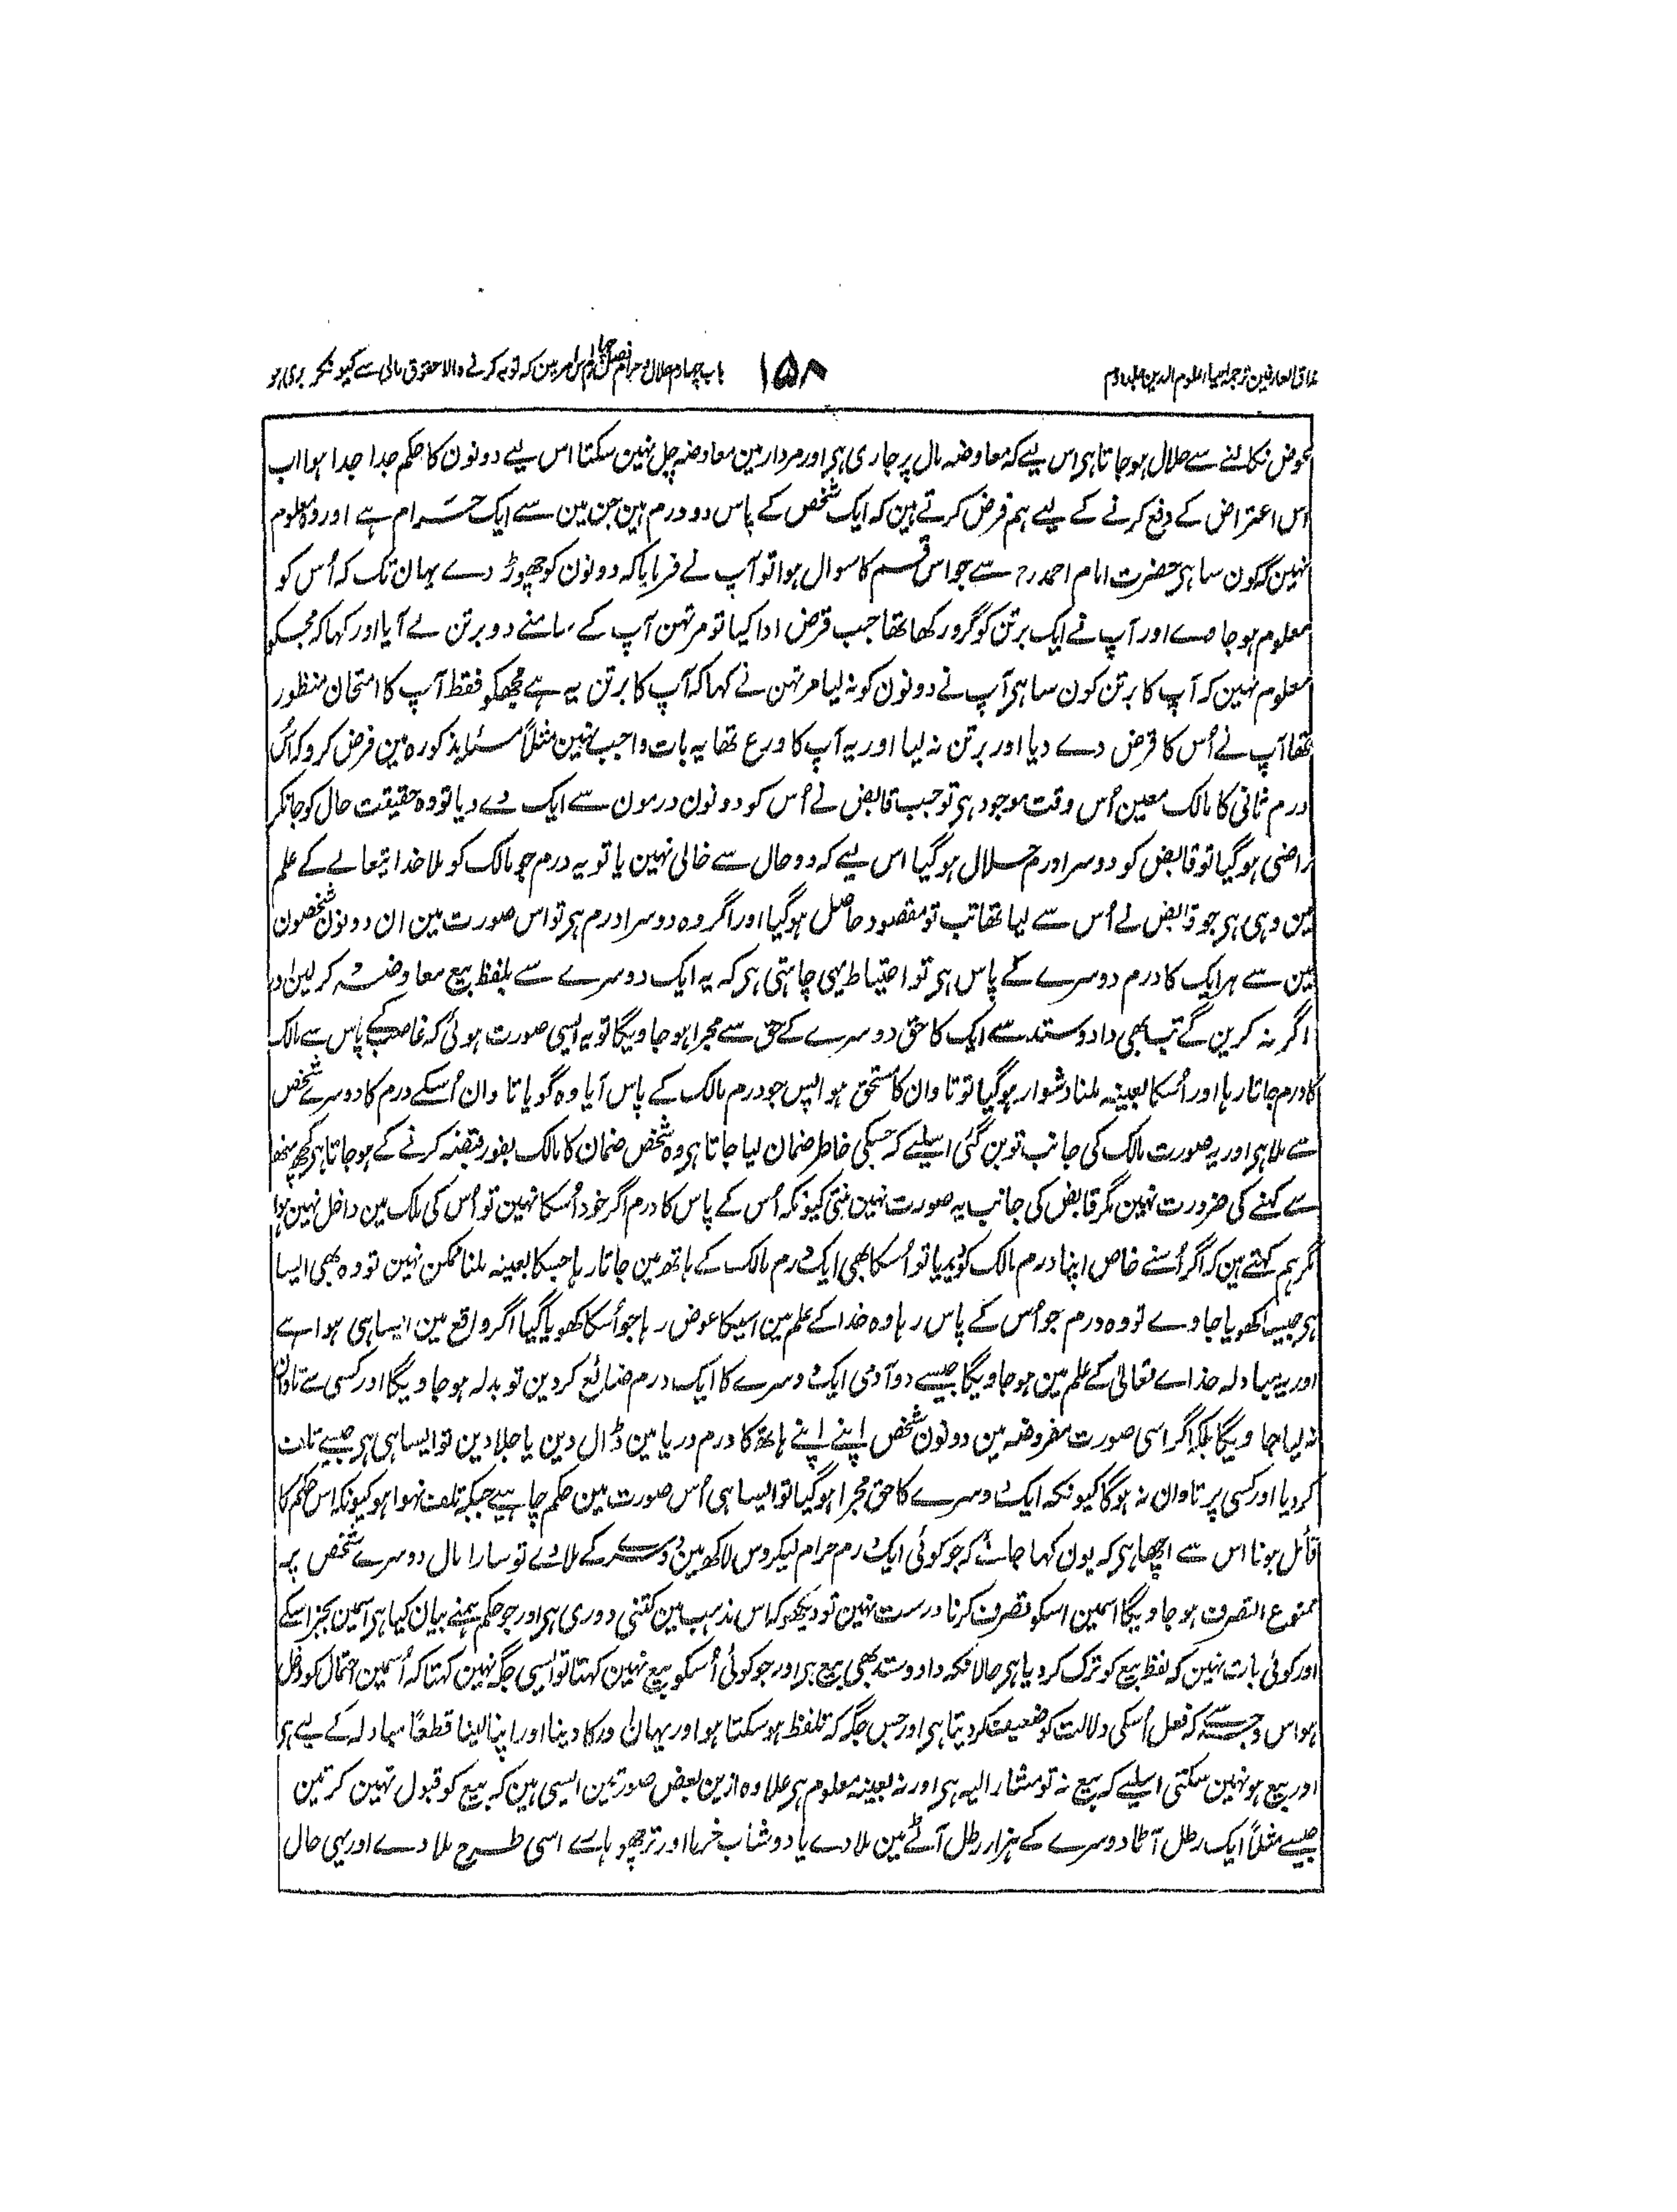 مذاق العارفین ترجمہ احیاء علوم الدین جلد دوم
۱۵۸
باب چہارم حلال و حرام فصل چہارم اس امر مین کہ توبہ کرنے والا حقوق مالی سے کیونکر بری ہو
عوض نکالنے سے حلال ہوجاتا ہی اس لیے کہ معاوضہ مال پر جاری ہی اور مردار مین معاوضہ چل نہین سکتا اس لیے دونون کا حکم جدا جدا ہوا اب
اس اعتراض کے دفع کرنے کے لیے ہم فرض کرتے ہین کہ ایک شخص کے پاس دو درم ہین جن مین سے ایک حرام ہے اور وہ معلوم
نہین کہ کون سا ہی حضرت امام احمد رح سے جو اس قسم کا سوال ہوا تو آپ نے فرمایا کہ دونون کو چھوڑ دے یہان تک کہ اُس کو
معلوم ہو جاوے اور آپ نے ایک برتن کو گرو رکھا تھا جب قرض ادا کیا تو مرتہن آپ کے سامنے دو برتن لے آیا اور کہا کہ مجکو
معلوم نہین کہ آپ کا برتن کون سا ہی آپ نے دونون کو نہ لیا مرتہن نے کہا کہ آپ کا برتن یہ ہے مجھکو فقط آپ کا امتحان منظور
تھا آپ نے اُس کا قرض دے دیا اور برتن نہ لیا اور یہ آپ کا ورع تھا یہ بات واجب نہین مثلاً مسئلہ مذکورہ مین فرض کرو کہ اُس
درم ثانی کا مالک معین اُس وقت موجود ہی تو جب قابض نے اُس کو دونون درمون سے ایک دے دیا تو وہ حقیقت حال کو جانکر
راضی ہو گیا تو قابض کو دوسرا درم حلال ہو گیا اس لیے کہ دو حال سے خالی نہین یا تو یہ درم جو مالک کو ملا خدا یتعالے کے علم
مین وہی ہی جو قابض نے اُس سے لیا تھا تب تو مقصود حاصل ہو گیا اور اگر وہ دوسرا درم ہی تو اس صورت مین ان دونون شخصون
مین سے ہر ایک کا درم دوسرے کے پاس ہی تو احتیاط یہی چاہتی ہی کہ یہ ایک دوسرے سے بلفظ بیع معاوضہ کر لین اور
اگر نہ کرین گے تب بھی داد و ستد سے ایک کا حق دوسرے کے حق سے مجرا ہو جاویگا تو یہ ایسی صورت ہوئی کہ غاصب کے پاس سے مالک
کا درم جاتا رہا اور اُسکا بعینہ ملنا دشوار ہو گیا تو تاوان کا مستحق ہوا پس جو درم مالک کے پاس آیا وہ گویا تاوان اُسکے درم کا دوسرے شخص
سے ملا ہی اور یہ صورت مالک کی جانب تو بن گئی اسلیے کہ جسکی خاطر ضمان لیا جاتا ہی وہ شخص ضمان کا مالک بفور قبضہ کرنے کے ہو جاتا ہی کچھ منھ
سے کہنے کی ضرورت نہین مگر قابض کی جانب یہ صورت نہین بنتی کیونکہ اُس کے پاس کا درم اگر خود اُسکا نہین تو اُس کی ملک مین داخل نہین ہوا
مگر ہم کہتے ہین کہ اگر اُسنے خاص اپنا درم مالک کو دیدیا تو اُسکا بھی ایک درم مالک کے ہاتھ مین جاتا رہا جسکا بعینہ ملنا ممکن نہین تو وہ بھی ایسا
ہی جیسا کھویا جاوے تو وہ درم جو اُس کے پاس رہا وہ خدا کے علم مین اسیکا عوض رہا جو اُسکا کھویا گیا اگر واقع مین ایسا ہی ہوا ہے
اور یہ مبادلہ خداے تعالیٰ کے علم مین ہو جاویگا جیسے دو آدمی ایک دوسرے کا ایک درم ضائع کردین تو بدلہ ہو جاویگا اور کسی سے تاوان
نہ لیا جاویگا بلکہ اگر اسی صورت مفروضہ مین دونون شخص اپنے اپنے ہاتھ کا درم دریا مین ڈال دین یا جلا دین تو ایسا ہی ہی جیسے تلف
کردیا اور کسی پر تاوان نہ ہوگا کیونکہ ایک دوسرے کا حق مجرا ہو گیا تو ایسا ہی اُس صورت مین حکم چاہیے جبکہ تلف نہوا ہو کیونکہ اس حکم کا
قائل ہونا اس سے اچھا ہی کہ یون کہا جائے کہ جو کوئی ایک درم حرام لیکر دس لاکھ مین دوسرے کے ملا دے تو سارا مال دوسرے شخص پر
ممنوع التصرف ہو جاویگا اسمین اسکو تصرف کرنا درست نہین تو دیکھو کہ اس مذہب مین کتنی دوری ہی اور جو حکم ہمنے بیان کیا ہی اسمین بجز اسکے
اور کوئی بات نہین کہ لفظ بیع کو ترک کر دیا ہی حالانکہ داد و ستد بھی بیع ہی اور جو کوئی اُسکو بیع نہین کہتا تو ایسی جگہ نہین کہتا کہ اُسمین احتمال کو دخل
ہو اس وجہ سے کہ فعل اُسکی دلالت کو ضعیف کر دیتا ہی اور جس جگہ کہ تلفظ ہو سکتا ہو اور یہان اور کا دینا اور اپنا لینا قطعاً مبادلہ کے لیے ہی
اور بیع ہو نہین سکتی اسلیے کہ مبیع نہ تو مشار الیہ ہی اور نہ بعینہ معلوم ہی علاوہ ازین بعض صورتین ایسی ہین کہ بیع کو قبول نہین کرتین
جیسے مثلاً ایک رطل آٹا دوسرے کے ہزار رطل آٹے مین ملا دے یا دوشاب خرما اور تر چھوہارے اسی طرح ملا دے اور یہی حال